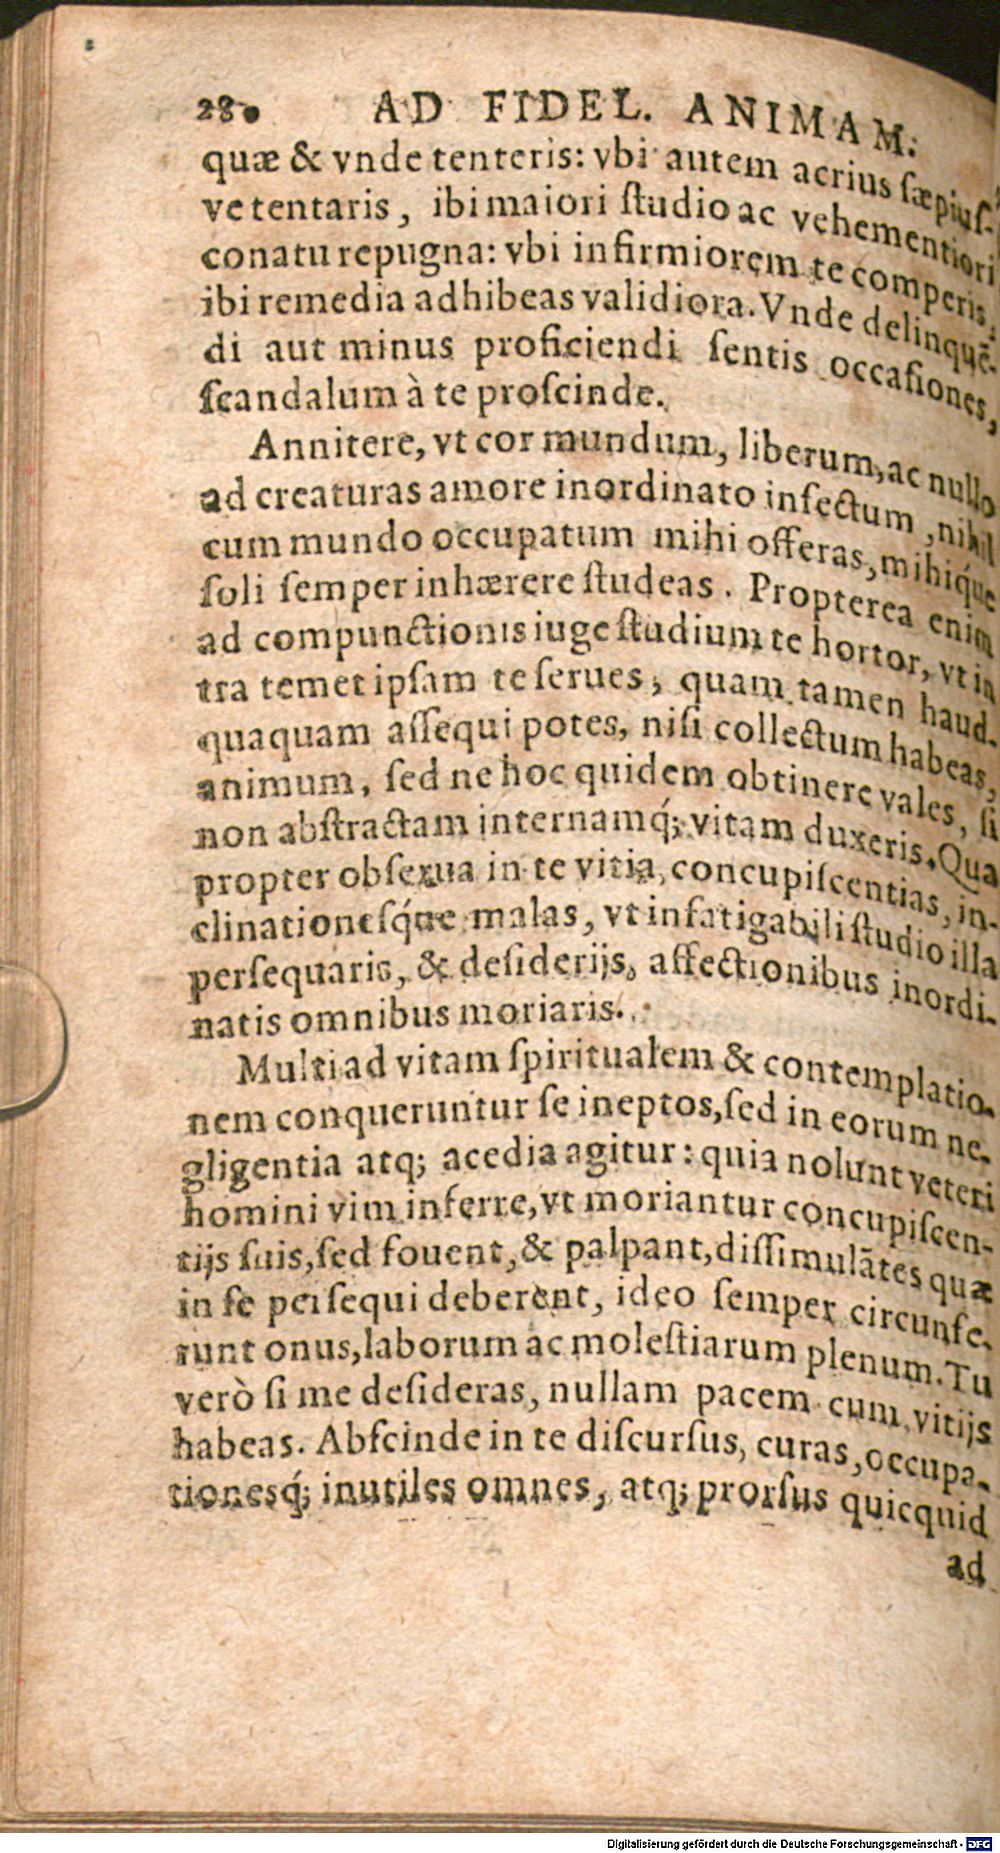 28. AD FIDEL. ANIMAM.
quæ & vnde tenteris: vbi autem acrius ſæpiuſ-
ve tentaris, ibi maiori ſtudio ac vehementiori
conatu repugna: vbi infirmiorem te comperis,
ibi remedia adhibeas validiora. Vnde delinquẽ-
di aut minus proficiendi ſentis occaſiones,
ſcandalum à te proſcinde.
Annitere, vt cor mundum, liberum, ac nullo
ad creaturas amore inordinato infectum, nihil
cum mundo occupatum mihi offeras, mihiq́ue
ſoli ſemper inhærere ſtudeas. Propterea enim
ad compunctionis iuge ſtudium te hortor, vt in
tra temet ipſam te ſerues, quam tamen haud-
quaquam aſſequi potes, niſi collectum habeas,
animum, ſed ne hoc quidem obtinere vales, ſi
non abſtractam internamq́; vitam duxeris. Qua
propter obſexua in te vitia, concupiſcentias, in-
clinationeſq́ue malas, vt infatigabili ſtudio illa
perſequaris, & deſiderijs, affectionibus inordi-
natis omnibus moriaris.
Multi ad vitam ſpiritualem & contemplatio-
nem conqueruntur ſe ineptos, ſed in eorum ne-
gligentia atq; acedia agitur: quia nolunt veteri
homini vim inferre, vt moriantur concupiſcen-
tijs ſuis, ſed fouent, & palpant, diſſimulãtes quæ
in ſe perſequi deberent, ideo ſemper circunfe-
runt onus, laborum ac moleſtiarum plenum. Tu
verò ſi me deſideras, nullam pacem cum vitijs
habeas. Abſcinde in te diſcurſus, curas, occupa-
tionesq́; inutiles omnes, atq; prorſus quicquid
ad
Digitalisierung gefördert durch die Deutsche Forschungsgemeinschaft - DFG